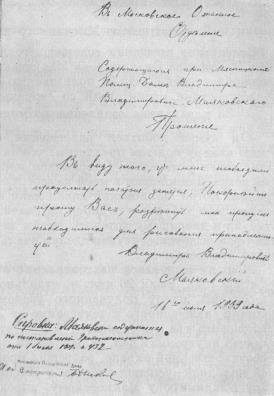 Въ Московское Охранное
Отдѣление
Содержащагося при Мясницкомъ
Полиц. Домѣ Владимира
Владимировича Маяковскаго
Прошение
Въ виду того, что мнѣ необходимо
продолжать начатыя занятия, покорнейше
прошу Васъ, разрѣшить мнѣ
необходимыя для рисования принадлежно-
сти
Владимиръ Владимировичъ
Маяковский
16го июля 1909 года
Справка: Маяковский содержится
по постановлению